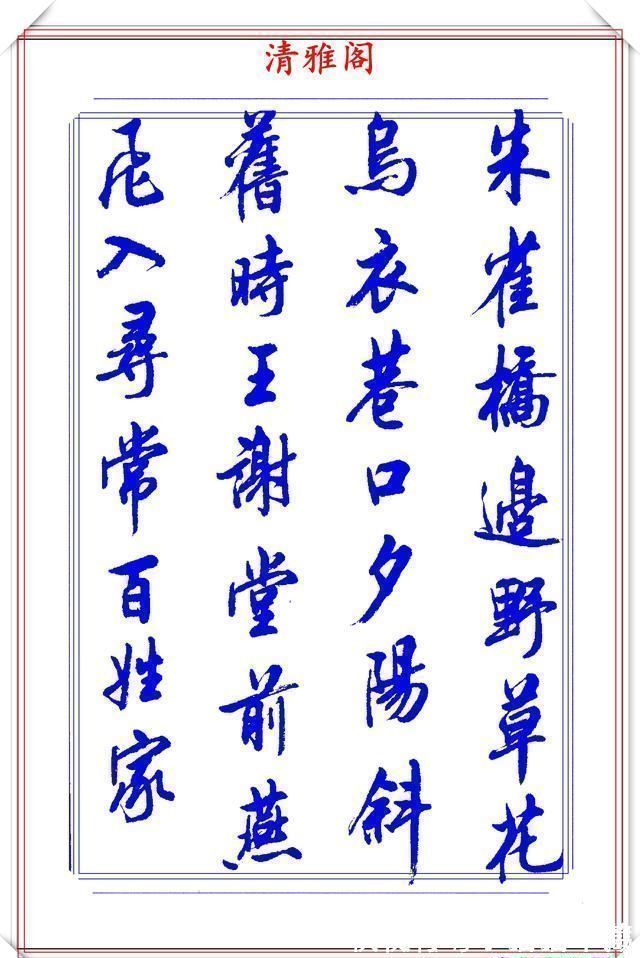 清雅阁
朱雀橋邊野草花
烏衣巷口夕陽斜
舊時王謝堂前燕
飛入尋常百姓家